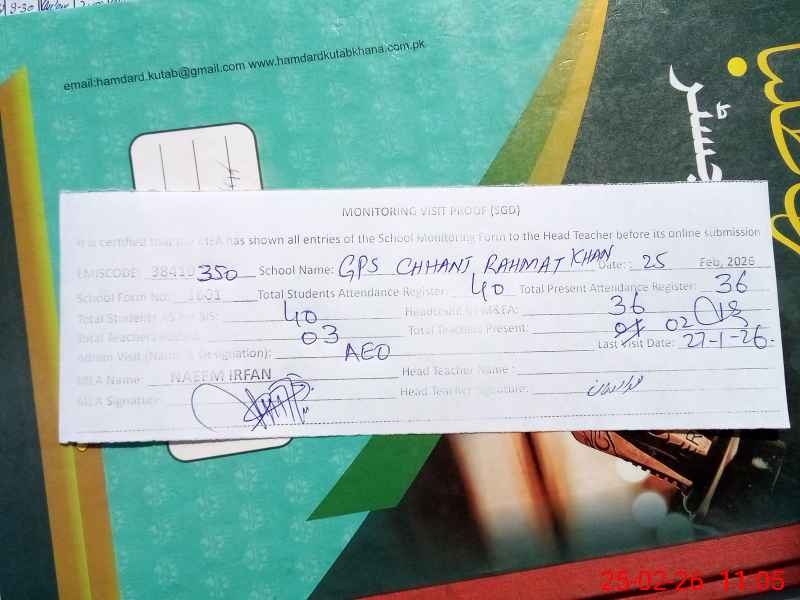 email:hamdard.kutab@gmail.com www.hamdardkutabkhana.com.pk
MONITORING VISIT PROOF (SGD)
It is certified that the MEA has shown all entries of the School Monitoring Form to the Head Teacher before its online submission
EMISCODE: 38410350 School Name: GPS CHHANI RAHMAT KHAN Date: 25 Feb, 2026
School Form No: 1601 Total Students Attendance Register: 40 Total Present Attendance Register: 36
Total Students AS for SIS: 40 Headcount by M&EA: 36
Total Teachers Posted: 03 Total Teachers Present: 02
Admin Visit (Name & Designation): AEO Last Visit Date: 27-1-26.
MEA Name: NAEEM IRFAN Head Teacher Name :
MEA Signature: Head Teacher Signature:
25-02-26 11:05